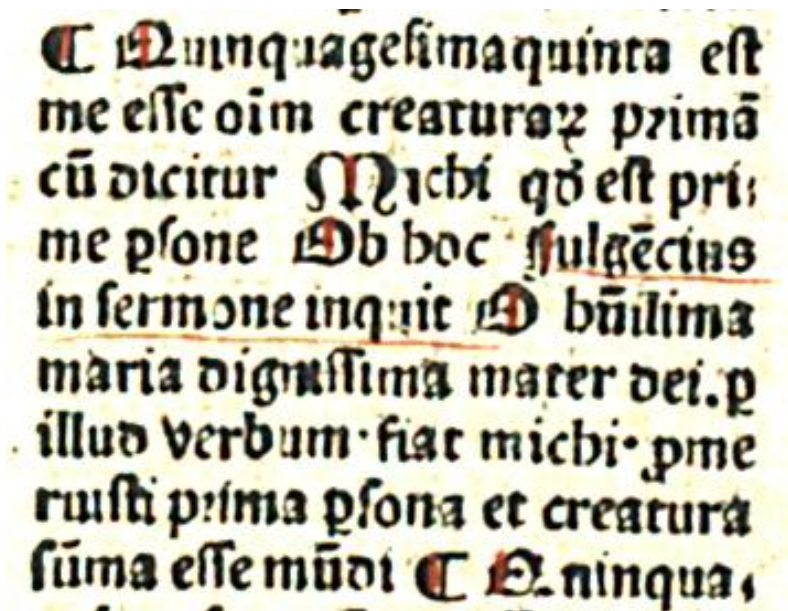 ¶ Quinquagesimaquinta est
me esse oīm creaturaꝝ primā
cū dicitur Michi qđ est pri⸗
me ꝑsone Ob hoc Fulgēcius
in sermone inquit O bn̄issima
maria dignissima mater dei. ꝑ
illud verbum· fiat michi· ꝓme
ruisti prima ꝑsona et creatura
sūma esse mūdi ¶ Quinqua⸗